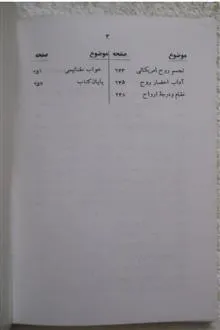 ۳
موضوع صفحه موضوع صفحه
تجسم روح امریکائی ۲۳۳ خواب مغناطیسی ۲۵۱
آداب احضار روح ۲۳۵ پایان کتاب ۲۵۵
مقام و درجهٔ ارواح ۲۳۸